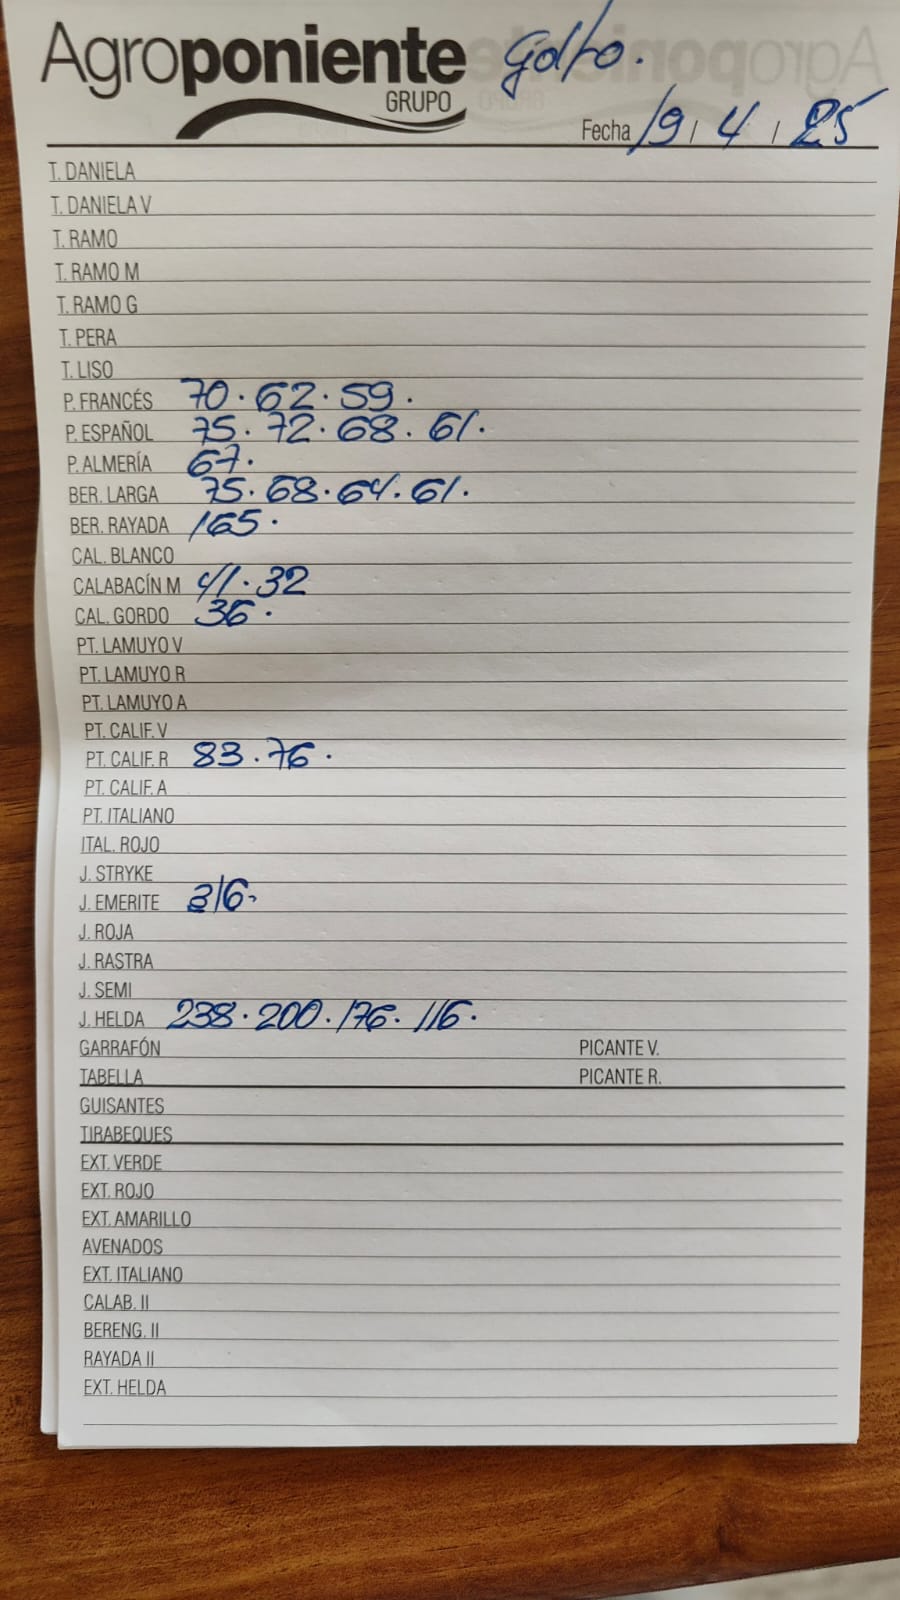 Agroponiente Golfo.
GRUPO
Fecha 19 / 4 / 25
T. DANIELA
T. DANIELA V
T. RAMO
T. RAMO M
T. RAMO G
T. PERA
T. LISO
P. FRANCÉS 70. 62. 59.
P. ESPAÑOL 75. 72. 68. 61.
P. ALMERÍA 67.
BER. LARGA 75. 68. 64. 61.
BER. RAYADA 165.
CAL. BLANCO
CALABACÍN M 41. 32
CAL. GORDO 36.
PT. LAMUYO V
PT. LAMUYO R
PT. LAMUYO A
PT. CALIF. V
PT. CALIF. R 83. 76.
PT. CALIF. A
PT. ITALIANO
ITAL. ROJO
J. STRYKE
J. EMERITE 316.
J. ROJA
J. RASTRA
J. SEMI
J. HELDA 238. 200. 176. 116.
GARRAFÓN PICANTE V.
TABELLA PICANTE R.
GUISANTES
TIRABEQUES
EXT. VERDE
EXT. ROJO
EXT. AMARILLO
AVENADOS
EXT. ITALIANO
CALAB. II
BERENG. II
RAYADA II
EXT. HELDA